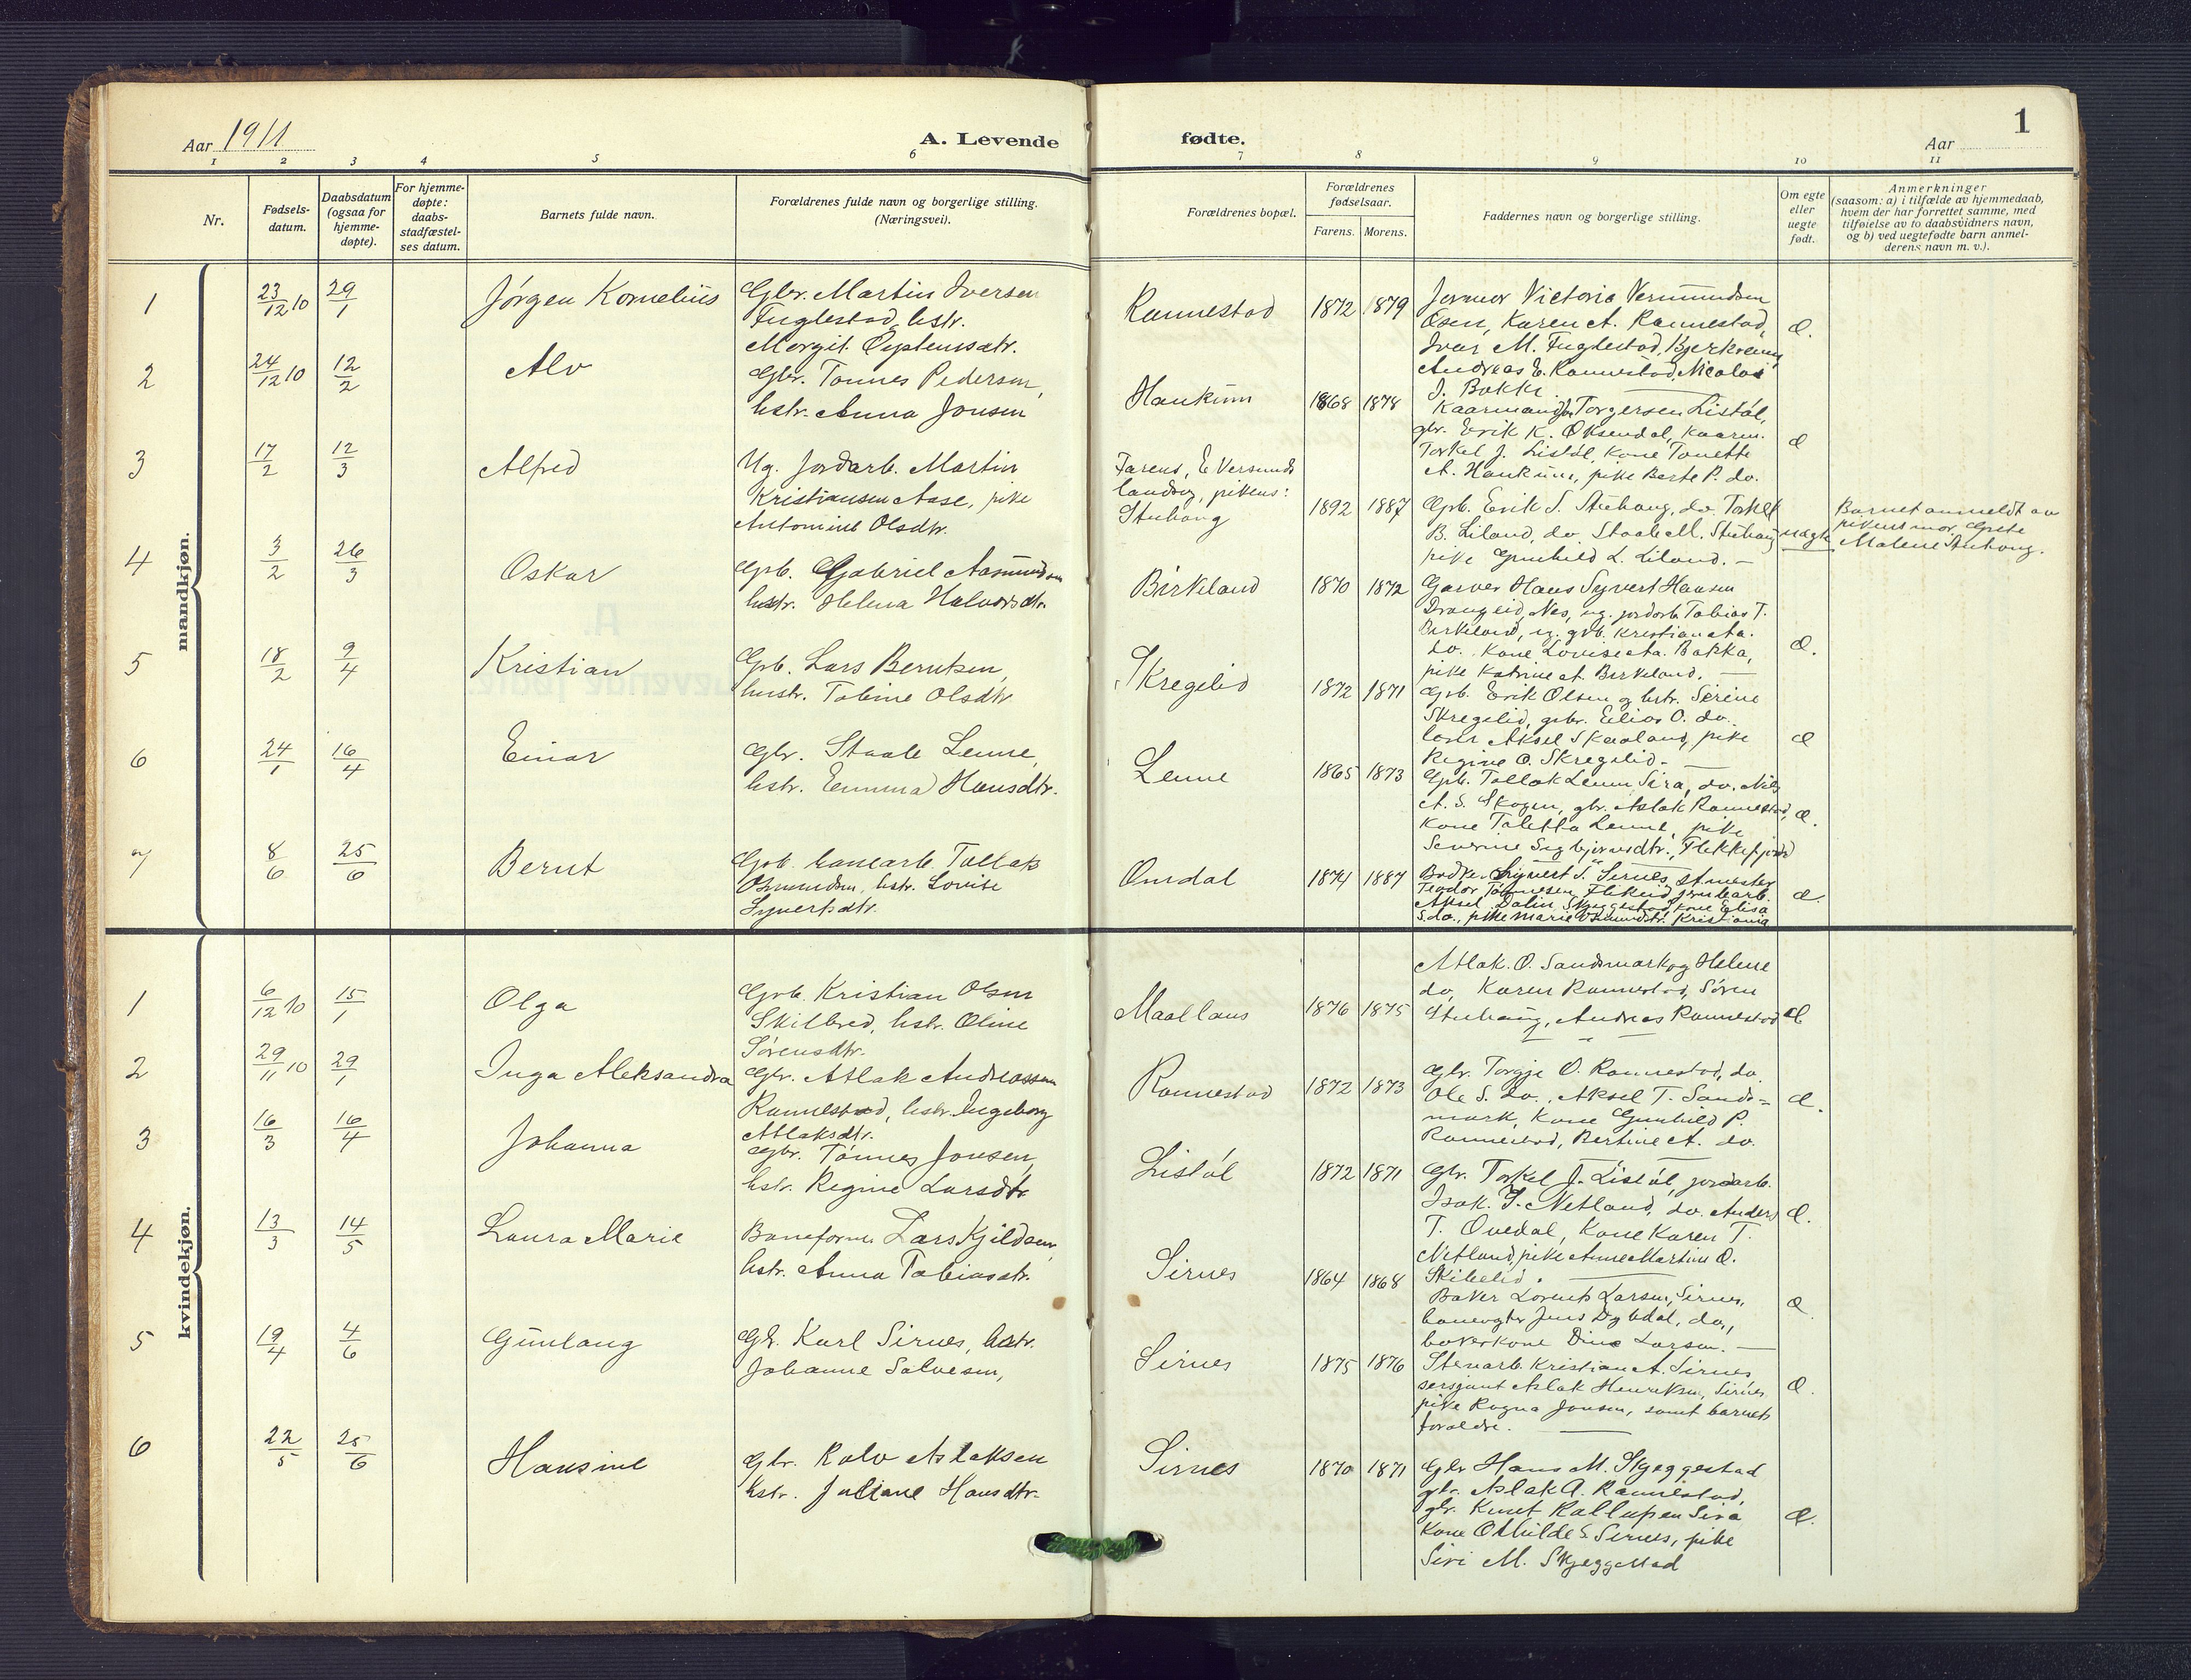 Aar 1911
A. Levende
fødte.
Aar
1
1 2 3 4 5 6 7 8 9 10 11
Nr.
Fødsels-
datum.
Daabsdatum
(ogsaa for
hjemme-
døpte).
For hjemme-
døpte:
daabs-
stadfæstel-
ses datum.
Barnets fulde navn.
Forældrenes fulde navn og borgerlige stilling.
(Næringsvei).
Forældrenes bopæl.
Forældrenes
fødselsaar.
Farens. Morens.
Faddernes navn og borgerlige stilling.
Om egte
eller
uegte
født.
Anmerkninger
(saasom: a) i tilfælde av hjemmedaab,
hvem der har forrettet samme, med
tilføielse av to daabsvidners navn,
og b) ved uegtefødte barn anmel-
derens navn m. v.).
mandkjøn.
1 23/12 10 29/1 Jørgen Kornelius
Gbr. Martin Iversen
Fuglestad, hstr.
Rannestad 1872 1879
Jormor Victoria Vermundsen
Osen, Karen A. Rannestad,
Ivar M. Fuglestad, Bjerkreim,
Andreas E. Rannestad, Nicolai
J. Bakke
Æ.
2 24/12 10 12/2 Alv
Gbr. Tønnes Pedersen,
hstr. Anna Jonsen
Haukum 1868 1878
Torgersen Listøl,
gbr. Erik K. Øksendal, kaarm.
Torkel J. Listøl, kone Tonette
A. Haukum, pike Berte P. do.
Æ
3 17/2 12/3 Alfred
Ug. jordarb. Martin
Kristiansen Aase, pike
Antomine Olsdtr.
Farens, E. Versmds
landsog, pikens:
Stuhaug 1892 1887
Gpb. Erik S. Stuhaug, do. Torkel
B. Liland, do. Staale M. Stuhaug
pike Gunhild L. Liland. –
uægte
Barnet anmeldt av
pikens mor Grete
Malene Stuhaug.
4 3/2 26/3 Oskar
Gpb. Gabriel Aasmundsen
hustr. Helena Halvorsdtr.
Birkeland 1870 1872
Garver Hans Syvert Hansen
Drangeid, Nes, ug. jordarb. Tobias T.
Birkeland, ug. grb. Kristian Aa.
do. Kone Lovise Aa. Bakka,
pike Katrine A. Birkeland. –
Æ.
5 18/2 9/4 Kristian
Gpb. Lars Berntsen,
hustr. Tobine Olsdtr
Skregelid 1872 1871
Gpb. Erik Olsen og hstr. Serine
Skregelid, gbr. Elias O. do.
Aksel Skaaland, pike
Regine O. Skregelid. –
Æ
6 24/1 16/4 Einar
Gbr. Staale Lenne,
hstr. Emma Hansdtr.
Lenne 1865 1873
Gpb. Tollak Lenne Sira, do. Nils
A. S. Skogen, gbr. Aslak Rannestad,
kone Taletta Lenne, pike
Severine Sigbjørnsdtr., Flekkefjord
Æ.
7 8/6 25/6 Bernt
Gpb. banearb. Tollak
Osmundsen, hstr. Lovise
Syvertsdtr.
Omdal 1874 1887
Syvert S. Sirnes, st.mester
Teodor Tønnesen, Flikeid, jernbarb.
Aksel Dalin, Skjeggestad, kone Elisa
S. do., pike Marie Osmundsdtr. Kristiania
Æ.
kvindekjøn.
1 6/12 10 15/1 Olga
Gpb. Kristian Olsen
Skilbred, hstr. Oline
Sørensdtr.
Maallaus 1876 1875
Atlak. O. Sandsmark og Helene
do, Karen Rannestad, Søren
Stuhaug, Andreas Rannestad
Æ
2 29/11 10 29/1 Inga Aleksandra
Gbr. Atlak Andreassen
Rannestad, hstr. Ingeborg
Atlaksdtr.
Rannestad 1872 1873
Gbr. Torgje O. Rannestad, do.
Ole S. do., Aksel T. Sands-
mark, Kone Gunhild P.
Rannestad, Bertine A. do.
Æ.
3 16/3 16/4 Johanna
Gbr. Tønnes Jonsen,
hstr. Regine Larsdtr
Listøl 1872 1871
Gbr. Torkel J. Listøl, jordarb.
Isak. G. Netland, do. Anders
T. Ovedal, Kone Karen T.
Netland, pike Anne Martine O.
Skibelid.
Æ.
4 13/3 14/5 Laura Marie
Baneform. Lars Kjeldsen,
hstr. Anna Tobiasdtr.
Sirnes 1864 1868
Baker Lorents Larsen, Sirnes,
banevogter Jens Dybdal, do.,
bakerkone Dina Larsen. –
Æ.
5 19/4 4/6 Gunlaug
Gbr. Karl Sirnes, hstr.
Johanne Salvesen,
Sirnes 1875 1876
Stenarb. Kristian A. Sirnes
sersjant Aslak Henriksen, Sirnes
pike Ragna Jonsen, samt barnets
foraldre. –
Æ.
6 22/5 25/6 Hansine
Gbr. Rolv Aslaksen
hstr. Juliane Hansdtr.
Sirnes 1870 1871
Gbr Hans M. Skjeggestad
gbr. Aslak A. Rannestad,
gbr. Knut Rallupen Sira
Kone Othilde S. Sirnes, pike
Siri M. Skjeggestad
Æ.